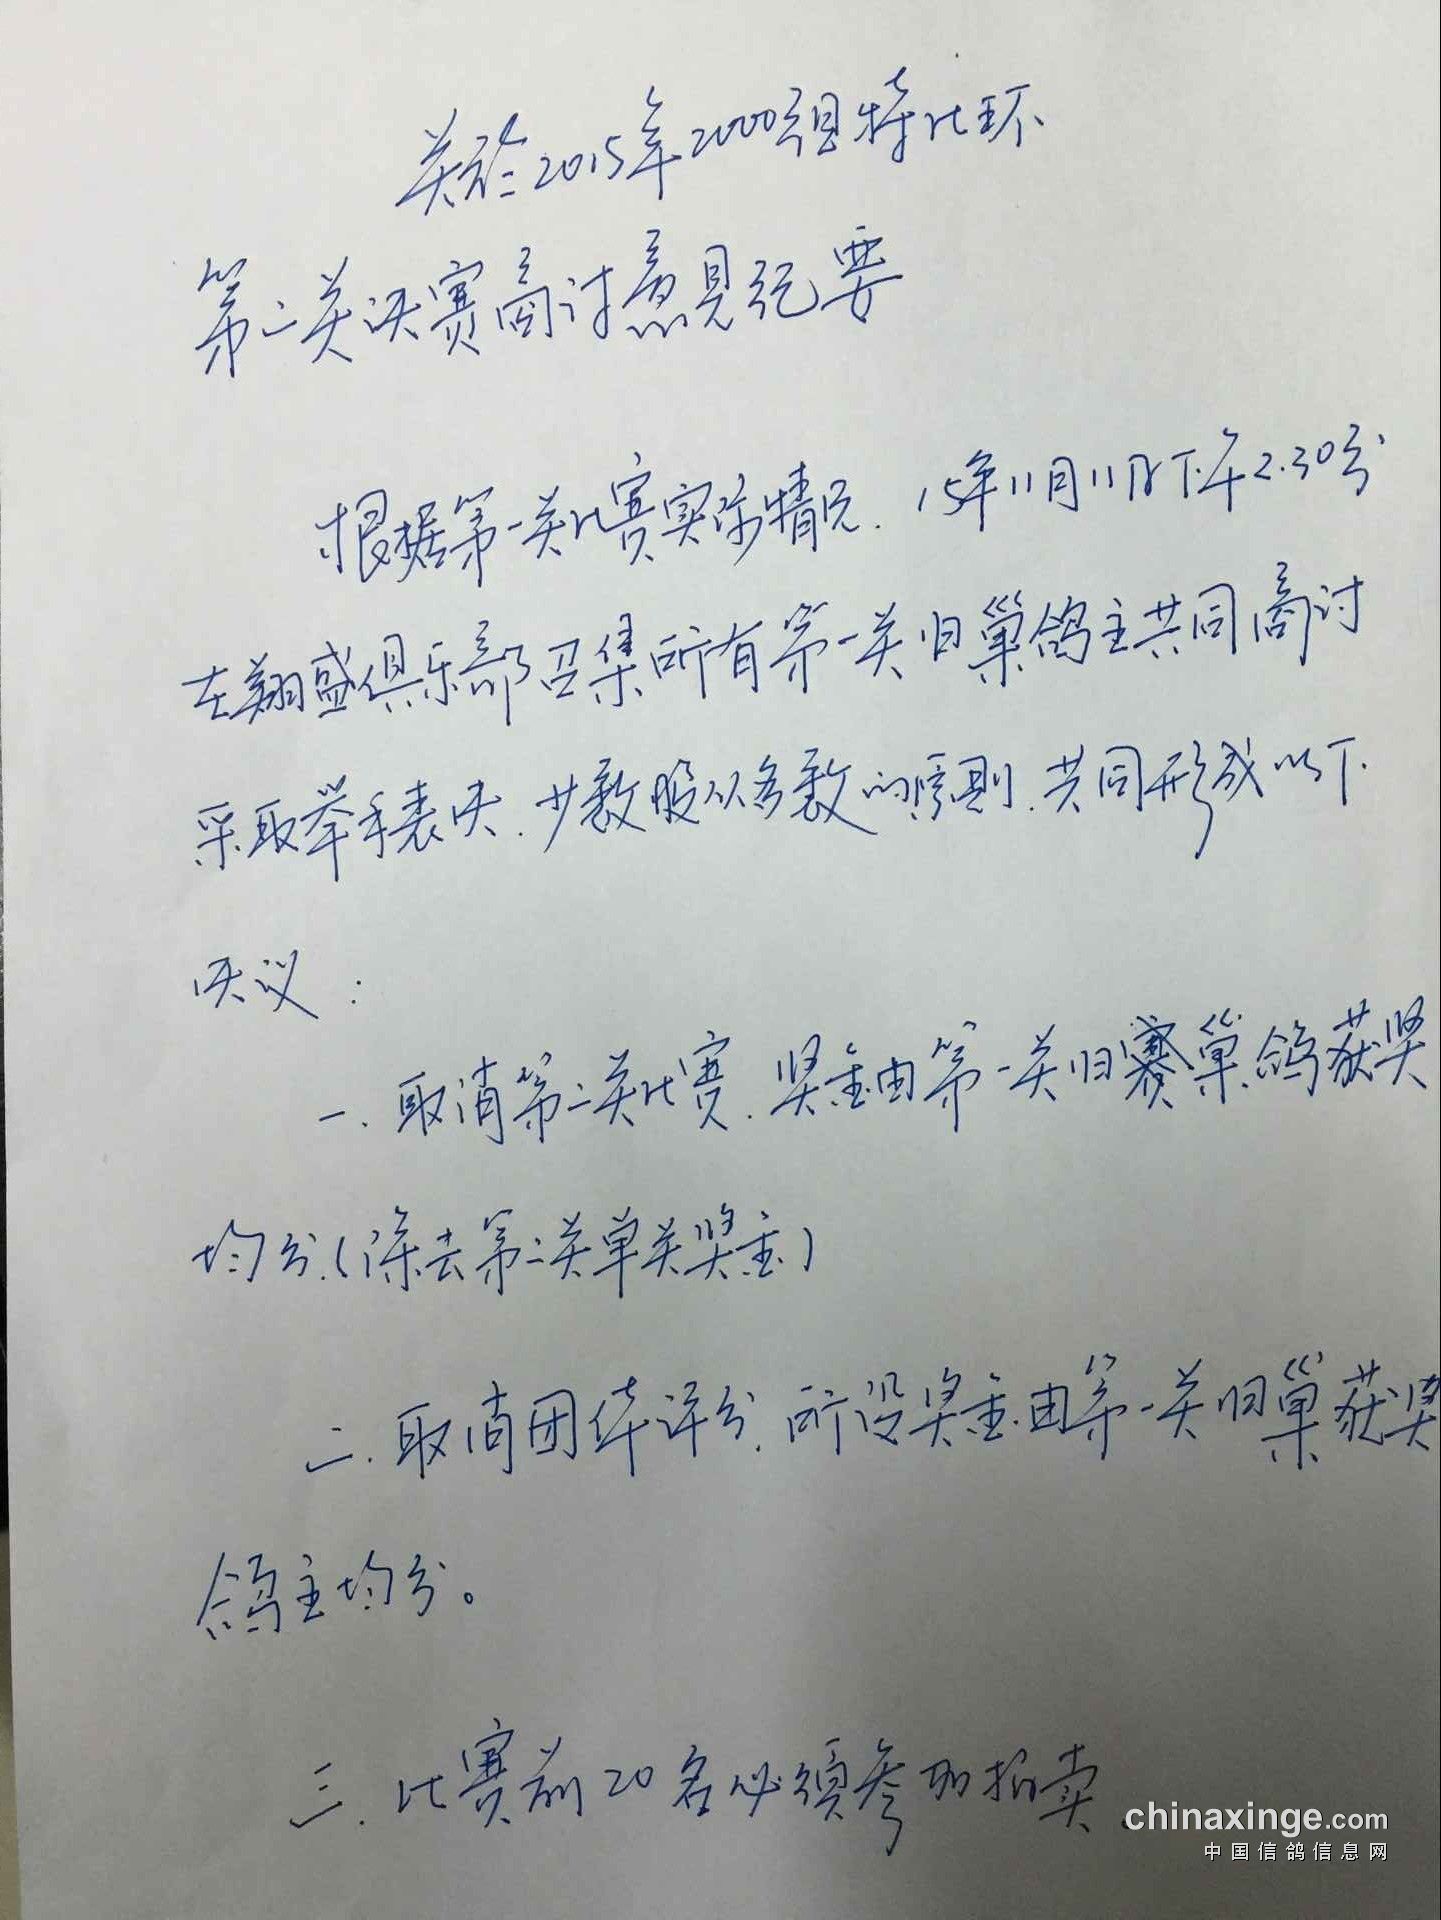 关於2015年2000组特比环
第二关决赛商讨意见纪要
根据第一关比赛实际情况.15年11月11日下午2.30分
在翔盛俱乐部召集所有第一关归巢鸽主共同商讨
采取举手表决.少数服从多数的原则.共同形成以下
决议：
一.取消第二关比赛.奖金由第一关归巢鸽获奖
均分.(除去第二关单关奖金)
二.取消团体评分.所设奖金.由第一关归巢获奖
鸽主均分。
三.比赛前20名必须参加拍卖.
chinaxinge.com
中国信鸽信息网